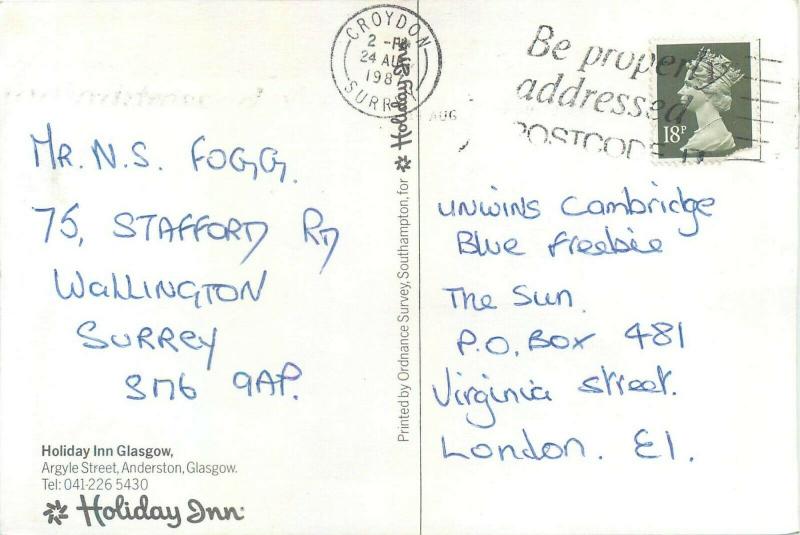 CROYDON
2 - P
24 AU
198
SURREY
Be properly
addressed
POSTCODE IT
AUG
18P
MR. N.S. FOGG.
75, STAFFORD RD
WALLINGTON
SURREY
SM6 9AP.
Holiday Inn Glasgow,
Argyle Street, Anderston, Glasgow.
Tel: 041-226 5430
Holiday Inn
Printed by Ordnance Survey, Southampton, for Holiday Inn
UNWINS Cambridge
Blue freebie
The Sun.
P.O. Box 481
Virginia Street.
London. E1.